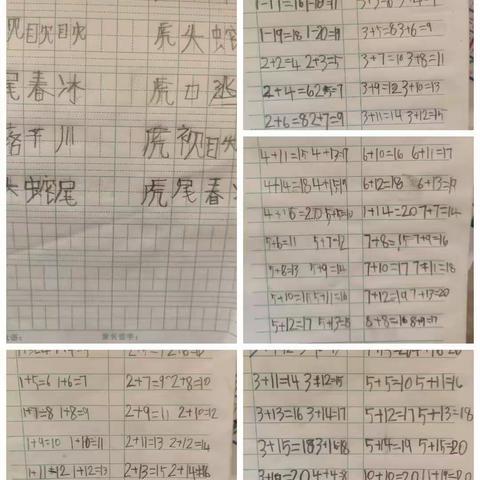 视眈眈 虎头蛇
尾 春冰 虎口逃
落平川 虎视眈
头蛇尾 虎尾春冰
家长签字:
1-19=18 1-20=19
2+2=4 2+3=5
2+4=6 2+5=7
2+6=8 2+7=9
3+5=8 3+6=9
3+7=10 3+8=11
3+9=12 3+10=13
3+11=14 3+12=15
4+11=15 4+13=17
4+14=18 4+15=19
4+16=20 5+5=10
5+6=11 5+7=12
5+8=13 5+9=14
5+10=15 5+11=16
5+12=17 5+13=18
6+10=16 6+11=17
6+12=18 6+13=19
1+14=20 7+7=14
7+8=15 7+9=16
7+10=17 7+11=18
7+12=19 7+13=20
8+8=16 8+9=17
1+5=6 1+6=7
1+7=8 1+8=9
1+9=10 1+10=11
1+11=12 1+12=13
2+7=9 2+8=10
2+9=11 2+10=12
2+11=13 2+12=14
2+13=15 2+14=16
3+11=14 3+12=15
3+13=16 3+14=17
3+15=18 3+16=18
3+19=20 4+4=8
5+5=10 5+11=16
5+12=17 5+13=18
5+14=19 5+15=20
10+10=20 11+19=20